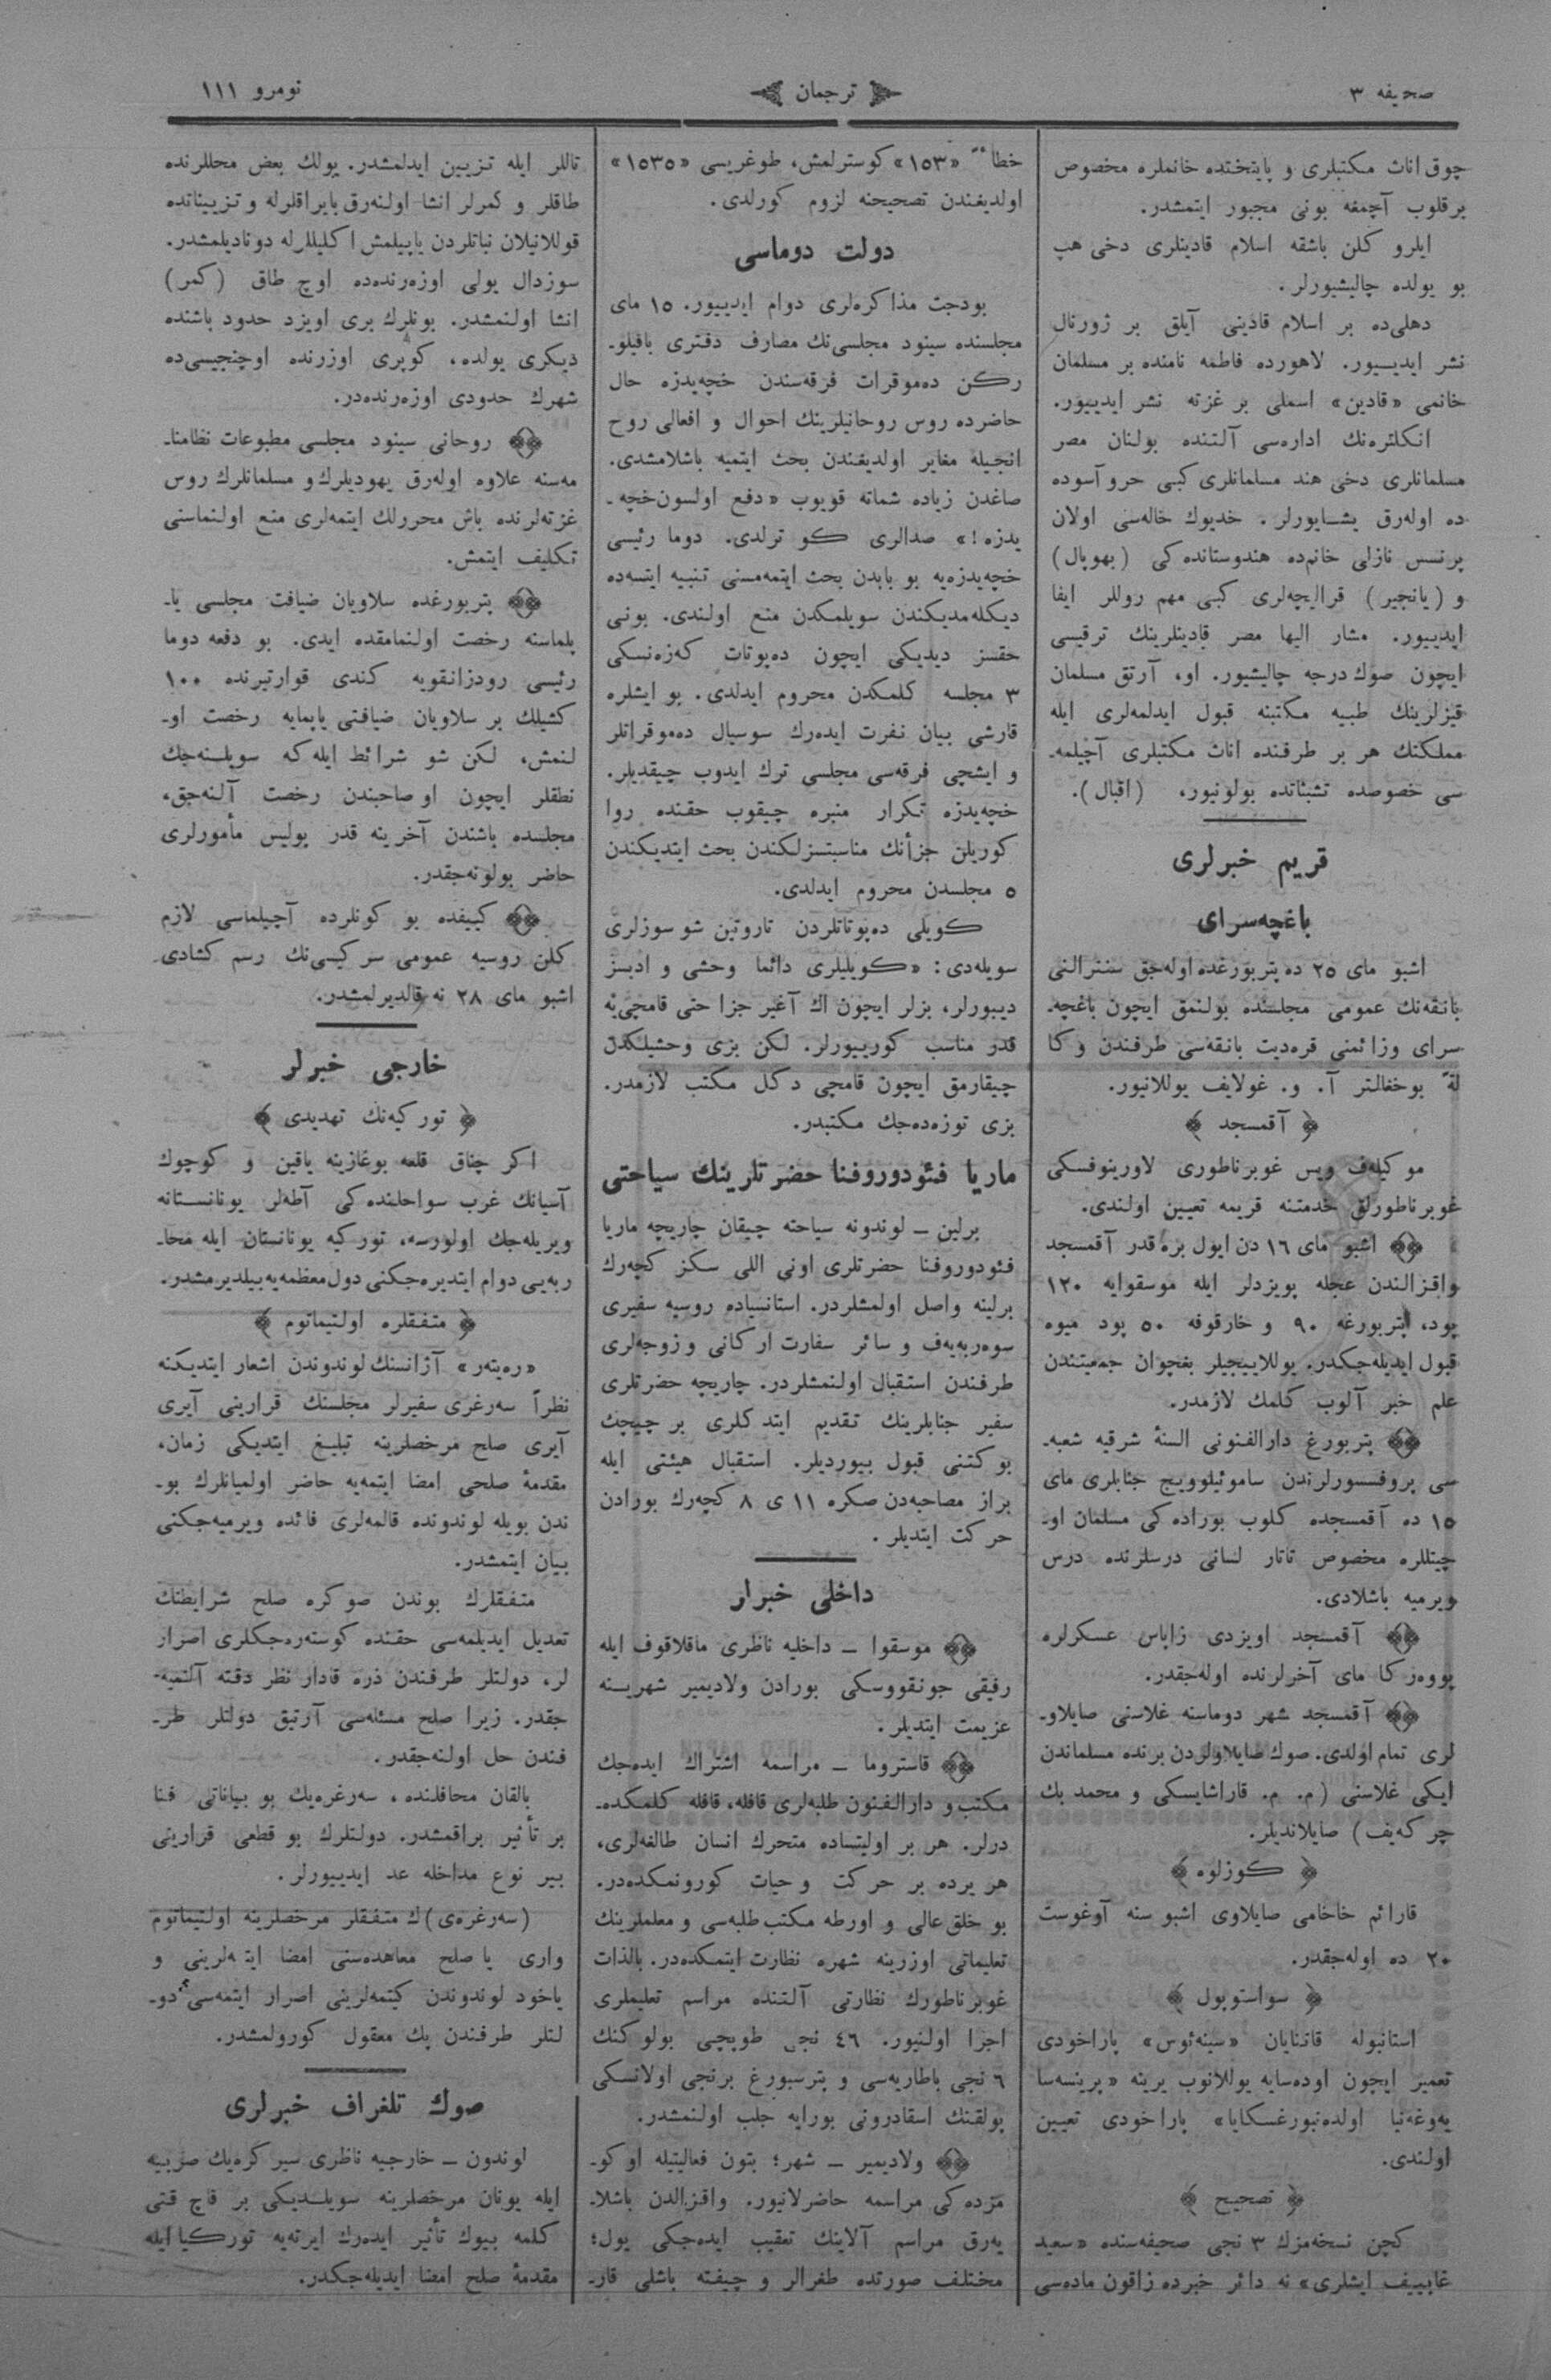 صحیفه ٣
ترجمان
نومرو ١١١
چوق اناث مكتبلری و پایتختده خانملره مخصوص
برقلوب آچمغه بونی مجبور ایتمشدر.
ایلرو كلن باشقه اسلام قادینلری دخی هپ
بو یولده چالیشیورلر.
دهلی‌ده بر اسلام قادینی آیلق بر ژورنال
نشر ایدییور. لاهورده فاطمه نامنده بر مسلمان
خانمی «قادین» اسملی بر غزته نشر ایدییور.
انكلتره‌نك اداره‌سی آلتنده بولنان مصر
مسلمانلری دخی هند مسلمانلری كبی حر و آسوده
ده اوله‌رق یشایورلر. خدیوك خاله‌سی اولان
پرنسس نازلی خانم‌ده هندوستانده‌كی (بهوپال)
و (یانجیر) قرالیچه‌لری كبی مهم روللر ایفا
ایدییور. مشار الیها مصر قادینلرینك ترقیسی
ایچون صوك درجه چالیشیور. او، آرتق مسلمان
قیزلرینك طبیه مكتبنه قبول ایدلمه‌لری ایله
مملكتك هر بر طرفنده اناث مكتبلری آچیلمه‌ـ
سی خصوصده تشبثاتده بولونیور. (اقبال).
قریم خبرلری
باغچه‌سرای
اشبو مای ٢٥ ده پتربورغده اوله‌جق سنترالنی
بانقه‌نك عمومی مجلسنده بولنمق ایچون باغچه‌ـ
سرای وزائمنی قره‌دیت بانقه‌سی طرفندن وكا
لة بوخغالتر آ. و. غولایف یوللانیور.
﴿ آقمسجد ﴾
موكیله‌ف ویس غوبرناطوری لاورینوفسكی
غوبرناطورلق خدمتنه قریمه تعیین اولندی.
اشبو مای ١٦ دن ایول بره قدر آقمسجد
واقزالندن عجله پویزدلر ایله موسقوایه ١٢٠
پود، پتربورغه ٩٠ و خارقوفه ٥٠ پود میوه
قبول ایدیله‌جكدر. یوللاییجیلر بغچوان جمعیتندن
علم خبر آلوب كلمك لازمدر.
پتربورغ دارالفنونی السنهٔ شرقیه شعبه‌ـ
سی پروفسسورلرندن ساموئیلوویچ جنابلری مای
١٥ ده آقمسجده كلوب بوراده‌كی مسلمان اوـ
چیتللره مخصوص تاتار لسانی درسلرنده درس
ویرمیه باشلادی.
آقمسجد اویزدی زاپاس عسكرلره
پووه‌ركا مای آخرلرنده اوله‌جقدر.
آقمسجد شهر دوماسنه غلاسنی صایلاوـ
لری تمام اولدی. صوك صایلاولردن برنده مسلماندن
ایكی غلاسنی (م. م. قاراشایسكی و محمد بك
چركه‌یف) صایلاندیلر.
﴿ كوزلوه ﴾
قارائم خاخامی صایلاوی اشبو سنه آوغوست
٢٠ ده اوله‌جقدر.
﴿ سواستوپول ﴾
استانبوله قاتنایان «سینه‌ئوس» پاراخودی
تعمیر ایچون اوده‌سایه یوللانوب یرینه «پرینسه‌سا
یه‌وغه‌نیا اولده‌نبورغسكایا» پاراخودی تعیین
اولندی.
﴿ تصحیح ﴾
كچن نسخه‌مزك ٣ نجی صحیفه‌سنده «سعید
غاییف ایشلری» نه دائر خبرده زاقون ماده‌سی
خطاءً «١٥٣» كوسترلمش، طوغریسی «١٥٣٥»
اولدیغندن تصحیحنه لزوم كورلدی.
دولت دوماسی
بودجت مذاكره‌لری دوام ایدییور. ١٥ مای
مجلسنده سینود مجلسی‌نك مصارف دفتری باقیلوـ
ركن ده‌موقرات فرقه‌سندن خچه‌یدزه حال
حاضرده روس روحانیلرینك احوال و افعالی روح
انجیله مغایر اولدیغندن بحث ایتمیه باشلامشدی.
صاغدن زیاده شماته قوپوب «دفع اولسون خچه‌ـ
یدزه!» صدالری كوترلدی. دوما رئیسی
خچه‌یدزه‌یه بو بابدن بحث ایتمه‌مسنی تنبیه ایتسه‌ده
دیكله‌مدیكندن سویلمكدن منع اولندی. بونی
حقسز دیدیكی ایچون ده‌پوتات كه‌زه‌نسكی
٣ مجلسه كلمكدن محروم ایدلدی. بو ایشلره
قارشی بیان نفرت ایده‌رك سوسیال ده‌موقراتلر
و ایشچی فرقه‌سی مجلسی ترك ایدوب چیقدیلر.
خچه‌یدزه تكرار منبره چیقوب حقنده روا
كوریلن جزأنك مناسبتسزلكندن بحث ایتدیكندن
٥ مجلسدن محروم ایدلدی.
كویلی ده‌پوتاتلردن تاروتین شو سوزلری
سویله‌دی: «كویلیلری دائما وحشی و ادبسز
دیبورلر، بزلر ایچون اك آغیر جزا حتی قامچی‌یه
قدر مناسب كورییورلر. لكن بزی وحشیلكدن
چیقارمق ایچون قامچی دكل مكتب لازمدر.
بزی توزه‌ده‌جك مكتبدر.
ماریا فئودوروفنا حضرتلرینك سیاحتی
برلین ــ لوندونه سیاحته چیقان چاریچه ماریا
فئودوروفنا حضرتلری اونی اللی سكز كچه‌رك
برلینه واصل اولمشلردر. استانسیاده روسیه سفیری
سوه‌ربه‌یه‌ف و سائر سفارت اركانی و زوجه‌لری
طرفندن استقبال اولنمشلردر. چاریچه حضرتلری
سفیر جنابلرینك تقدیم ایتدكلری بر چیچك
بوكتنی قبول بیوردیلر. استقبال هیئتی ایله
براز مصاحبه‌دن صكره ١١ ی ٨ كچه‌رك بورادن
حركت ایتدیلر.
داخلی خبرار
موسقوا ــ داخلیه ناظری ماقلاقوف ایله
رفیقی جونقووسكی بورادن ولادیمیر شهرینه
عزیمت ایتدیلر.
قاستروما ــ مراسمه اشتراك ایده‌جك
مكتب و دارالفنون طلبه‌لری قافله، قافله كلمكده‌ـ
درلر. هر بر اولیتساده متحرك انسان طالغه‌لری،
هر یرده بر حركت و حیات كورونمكده‌در.
بو خلق عالی و اورطه مكتب طلبه‌سی و معلملرینك
تعلیماتی اوزرینه شهره نظارت ایتمكده‌در. بالذات
غوبرناطورك نظارتی آلتنده مراسم تعلیملری
اجرا اولنیور. ٤٦ نجی طوپچی بولوكنك
٦ نجی باطاریه‌سی و پترسبورغ برنجی اولانسكی
پولقنك اسقادرونی بورایه جلب اولنمشدر.
ولادیمیر ــ شهر؛ بتون فعالیتیله اوكوـ
مزده‌كی مراسمه حاضرلانیور. واقزالدن باشلاـ
یه‌رق مراسم آلاینك تعقیب ایده‌جكی یول؛
مختلف صورتده طغرالر و چیفته باشلی قارـ
تاللر ایله تزیین ایدلمشدر. یولك بعض محللرنده
طاقلر و كمرلر انشا اولنه‌رق بایراقلرله و تزییناتده
قوللانیلان نباتلردن یاپیلمش اكلیللرله دوناديلمشدر.
سوزدال یولی اوزه‌رنده‌ده اوچ طاق (كمر)
انشا اولنمشدر. بونلرك بری اویزد حدود باشنده
دیكری یولده، كوپری اوزرنده اوچنجیسی‌ده
شهرك حدودی اوزه‌رنده‌در.
روحانی سینود مجلسی مطبوعات نظامناـ
مه‌سنه علاوه اوله‌رق یهودیلرك و مسلمانلرك روس
غزته‌لرنده باش محررلك ایتمه‌لری منع اولنماسنی
تكلیف ایتمش.
پتربورغده سلاویان ضیافت مجلسی یاـ
پلماسنه رخصت اولنمامقده ایدی. بو دفعه دوما
رئیسی رودزانقویه كندی قوارتیرنده ١٠٠
كشیلك بر سلاویان ضیافتی یاپمایه رخصت اوـ
لنمش، لكن شو شرائط ایله كه سویلنه‌جك
نطقلر ایچون اوصاحبندن رخصت آلنه‌جق،
مجلسده باشندن آخرینه قدر پولیس مأمورلری
حاضر بولونه‌جقدر.
كییفده بو كونلرده آچیلماسی لازم
كلن روسیه عمومی سركیسی‌نك رسم كشادی
اشبو مای ٢٨ نه قالدیرلمشدر.
خارجی خبرلر
﴿ توركیه‌نك تهدیدی ﴾
اكر چناق قلعه بوغازینه یاقین و كوچوك
آسیانك غرب سواحلنده‌كی آطه‌لر یونانستانه
ویریله‌جك اولورسه، توركیه یونانستان ایله محاـ
ربه‌یی دوام ایتدیره‌جكنی دول معظمه‌یه بیلدیرمشدر.
﴿ متفقلره اولتیماتوم ﴾
«ره‌یته‌ر» آژانسنك لوندوندن اشعار ایتدیكنه
نظراً سه‌رغری سفیرلر مجلسنك قرارینی آیری
آیری صلح مرخصلرینه تبلیغ ایتدیكی زمان،
مقدمهٔ صلحی امضا ایتمه‌یه حاضر اولمیانلرك بوـ
ندن بویله لوندونده قالمه‌لری فائده ویرمیه‌جكنی
بیان ایتمشدر.
متفقلرك بوندن صوكره صلح شرایطنك
تعدیل ایدیلمه‌سی حقنده كوستره‌جكلری اصرار
لر، دولتلر طرفندن ذره قادار نظر دقته آلنمیه‌ـ
جقدر. زیرا صلح مسئله‌سی آرتیق دولتلر طرـ
فندن حل اولنه‌جقدر.
بالقان محافلنده، سه‌رغره‌یك بو بیاناتی فنا
بر تأثیر براقمشدر. دولتلرك بو قطعی قرارینی
بیر نوع مداخله عد ایدییورلر.
(سه‌رغره‌ی)ك متفقلر مرخصلرینه اولتیماتوم
واری یا صلح معاهده‌سنی امضا ایته‌لرینی و
یاخود لوندوندن كیتمه‌لرینی اصرار ایتمه‌سی دوـ
لتلر طرفندن پك معقول كورولمشدر.
صوك تلغراف خبرلری
لوندون ــ خارجیه ناظری سیر كره‌یك صربیه
ایله یونان مرخصلرینه سویلدیكی بر قاچ قتی
كلمه بیوك تأثیر ایده‌رك ایرته‌یه توركیا ایله
مقدمهٔ صلح امضا ایدیله‌جكدر.